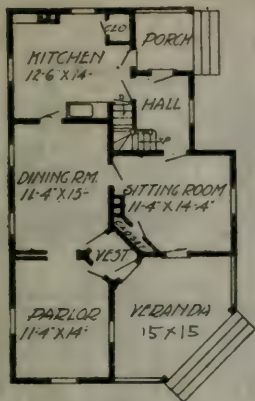 CLO
KITCHEN
12-6"X14-
PORCH
HALL
DINING RM.
11-4"X15-
SITTING ROOM
11-4"X14-4"
CLOSET
VEST.
PARLOR
11-4"X14-
VERANDA
15X15